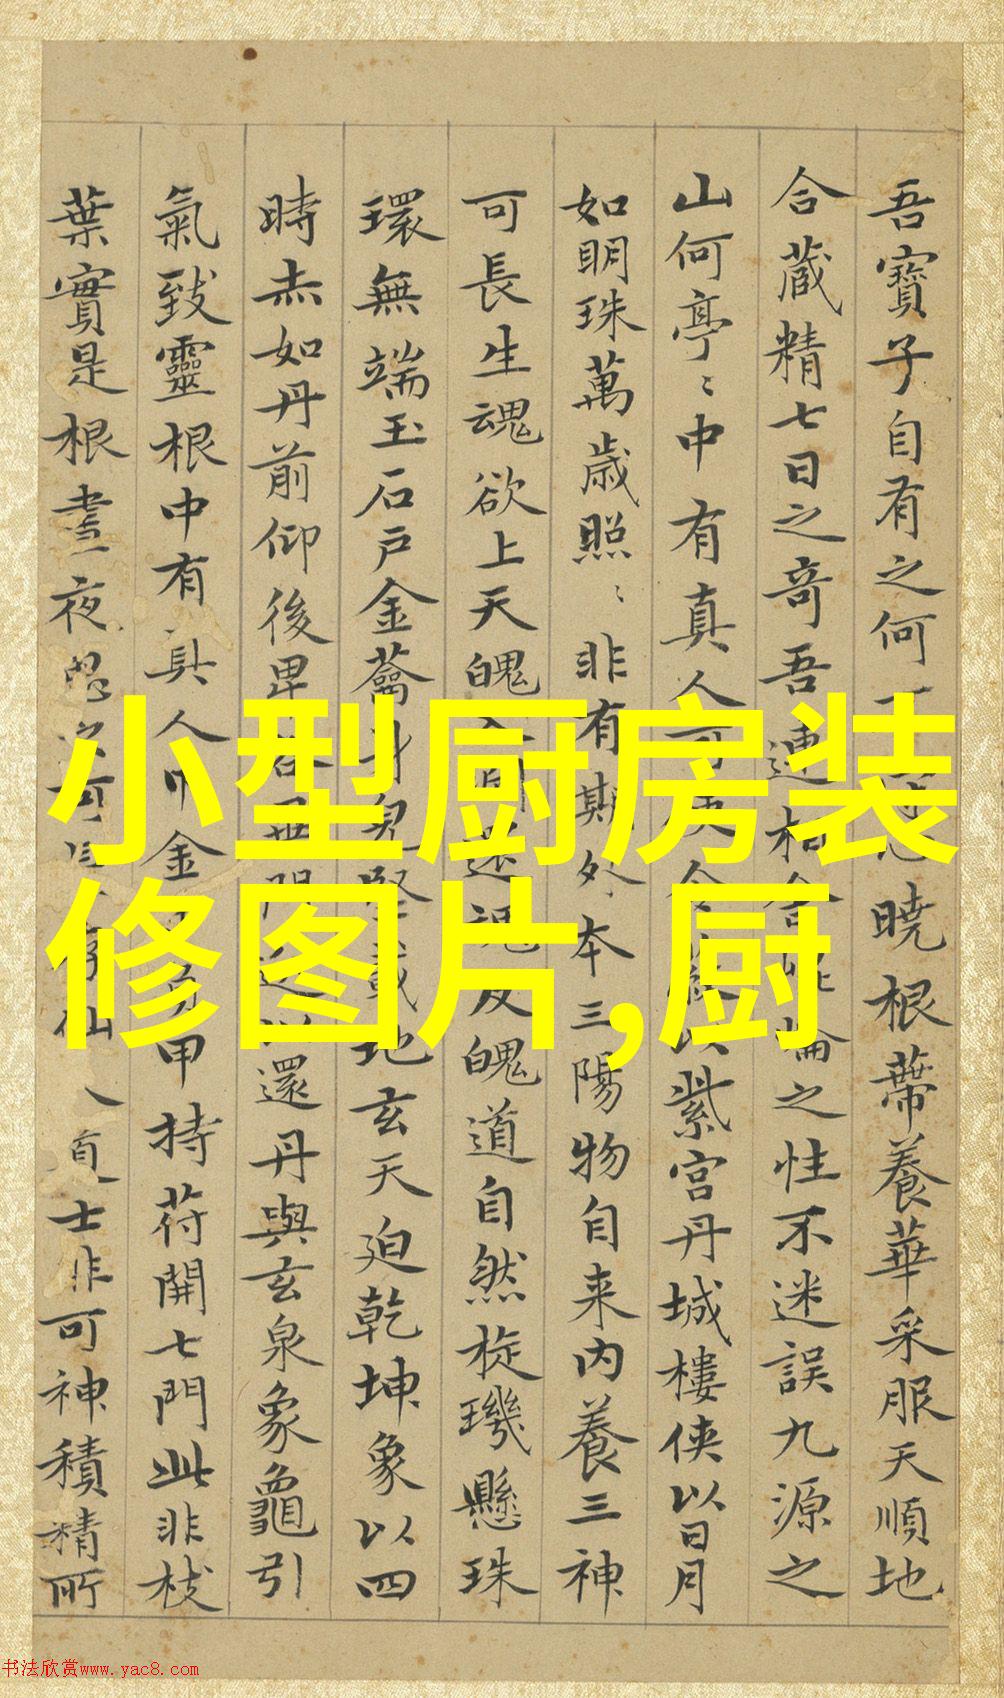 吾寶子自有之何
曉根蔕養華采服天順地
合藏精七日之奇吾連相合
之性不迷誤九源之
山何亭〻中有真人
紫宮丹城樓俠以日月
如明珠萬歲照〻非有期外本三陽物自来内養三神
可長生魂欲上天魄
魄道自然旋璣懸珠
環無端玉石戶金籥
堅
地玄天迫乾坤象以四
時赤如丹前仰後卑
還丹與玄泉象龜引
氣致靈根中有真人巾金
甲持苻開七門此非枝
葉實是根晝夜思
仙
士非可神積精所
小型厨房装
修图片,厨
书法欣赏www.yac8.com